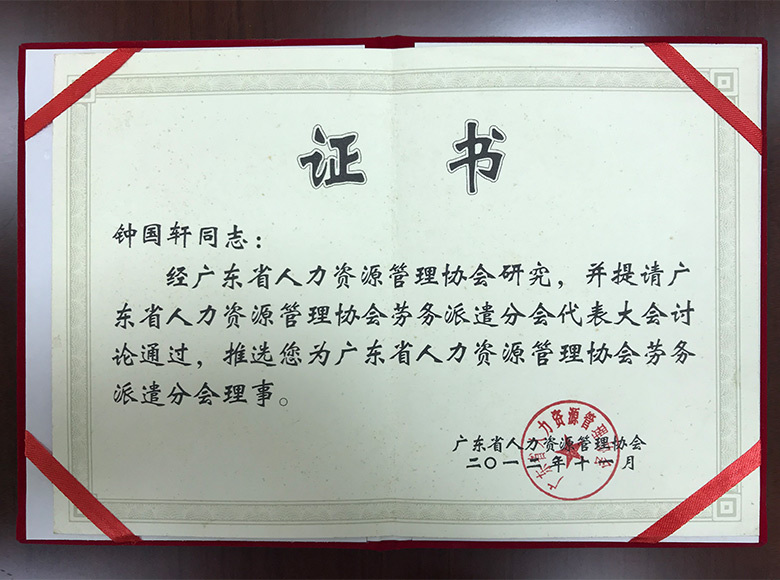 证书
钟国轩同志：
经广东省人力资源管理协会研究，并提请广
东省人力资源管理协会劳务派遣分会代表大会讨
论通过，推选您为广东省人力资源管理协会劳务
派遣分会理事。
广东省人力资源管理协会
二〇一二年十一月
广东省人力资源管理协会